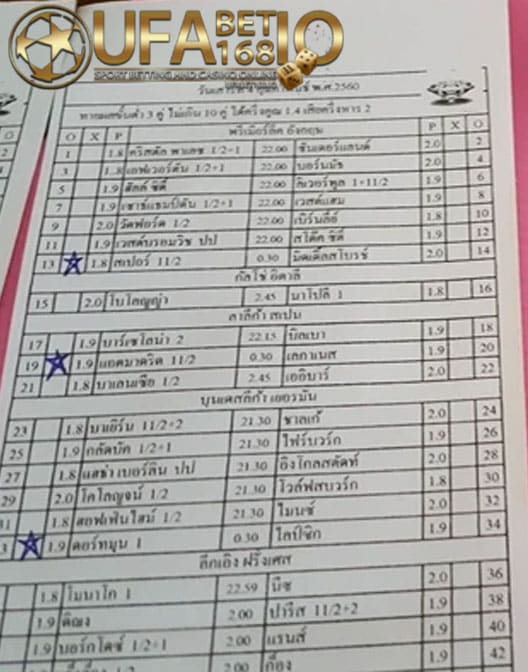 UFABET1681O
SPORT BETTING AND CASINO ONLINE
พ.ศ.2560
ทายผลขั้นต่ำ 3 คู่ ไม่เกิน 10 คู่ ได้ครึ่งคูณ 1.4 เสียครึ่งหาร 2
O X P พรีเมียร์ลีค อังกฤษ P X O
1 1.8 คริสตัล พาเลซ 1/2+1 22.00 ซันเดอร์แลนด์ 2.0 2
3 1.8 เอฟเวอร์ตัน 1/2+1 22.00 บอร์นมัธ 2.0 4
5 1.9 ฮัลล์ ซิตี้ 22.00 ลิเวอร์พูล 1+11/2 1.9 6
7 1.9 เซาธ์แฮมป์ตัน 1/2+1 22.00 เวสต์แฮม 1.9 8
9 2.0 วัตฟอร์ด 1/2 22.00 เบิร์นลีย์ 1.8 10
11 1.9 เวสต์บรอมวิช ปป 22.00 สโต๊ค ซิตี้ 1.9 12
13 1.8 สเปอร์ 11/2 0.30 มิดเดิ้ลสโบรช์ 2.0 14
กัลโช่ อิตาลี
15 2.0 โบโลญญ่า 2.45 นาโปลี 1 1.8 16
ลาลีก้า สเปน
17 1.9 บาร์เซโลน่า 2 22.15 บิลเบา 1.9 18
19 1.9 แอตมาดริด 11/2 0.30 เลกาเนส 1.9 20
21 1.8 บาเลนเซีย 1/2 2.45 เออิบาร์ 2.0 22
บุนเดสลีก้า เยอรมัน
23 1.8 บาเยิร์น 11/2+2 21.30 ชาลเก้ 2.0 24
25 1.9 กลัดบัค 1/2+1 21.30 ไฟร์บวร์ก 1.9 26
27 1.8 แฮร่า เบอร์ลิน ปป 21.30 อิงโกลสตัดท์ 2.0 28
29 2.0 โคโลญจน์ 1/2 21.30 โวล์ฟสบวร์ก 1.8 30
31 1.8 ฮอฟเฟ่นไฮม์ 1/2 21.30 ไมนซ์ 2.0 32
3 1.9 ดอร์ทมุน 1 0.30 ไลป์ซิก 1.9 34
ลีกเอิง ฝรั่งเศส
1.8 โมนาโก 1 22.59 นีซ 2.0 36
1.9 ดิฌง 2.00 ปารีส 11/2+2 1.9 38
1.9 บอร์กโดซ์ 1/2+1 2.00 แรนส์ 1.9 40
1/2 2.00 ก็อง 1.9 42